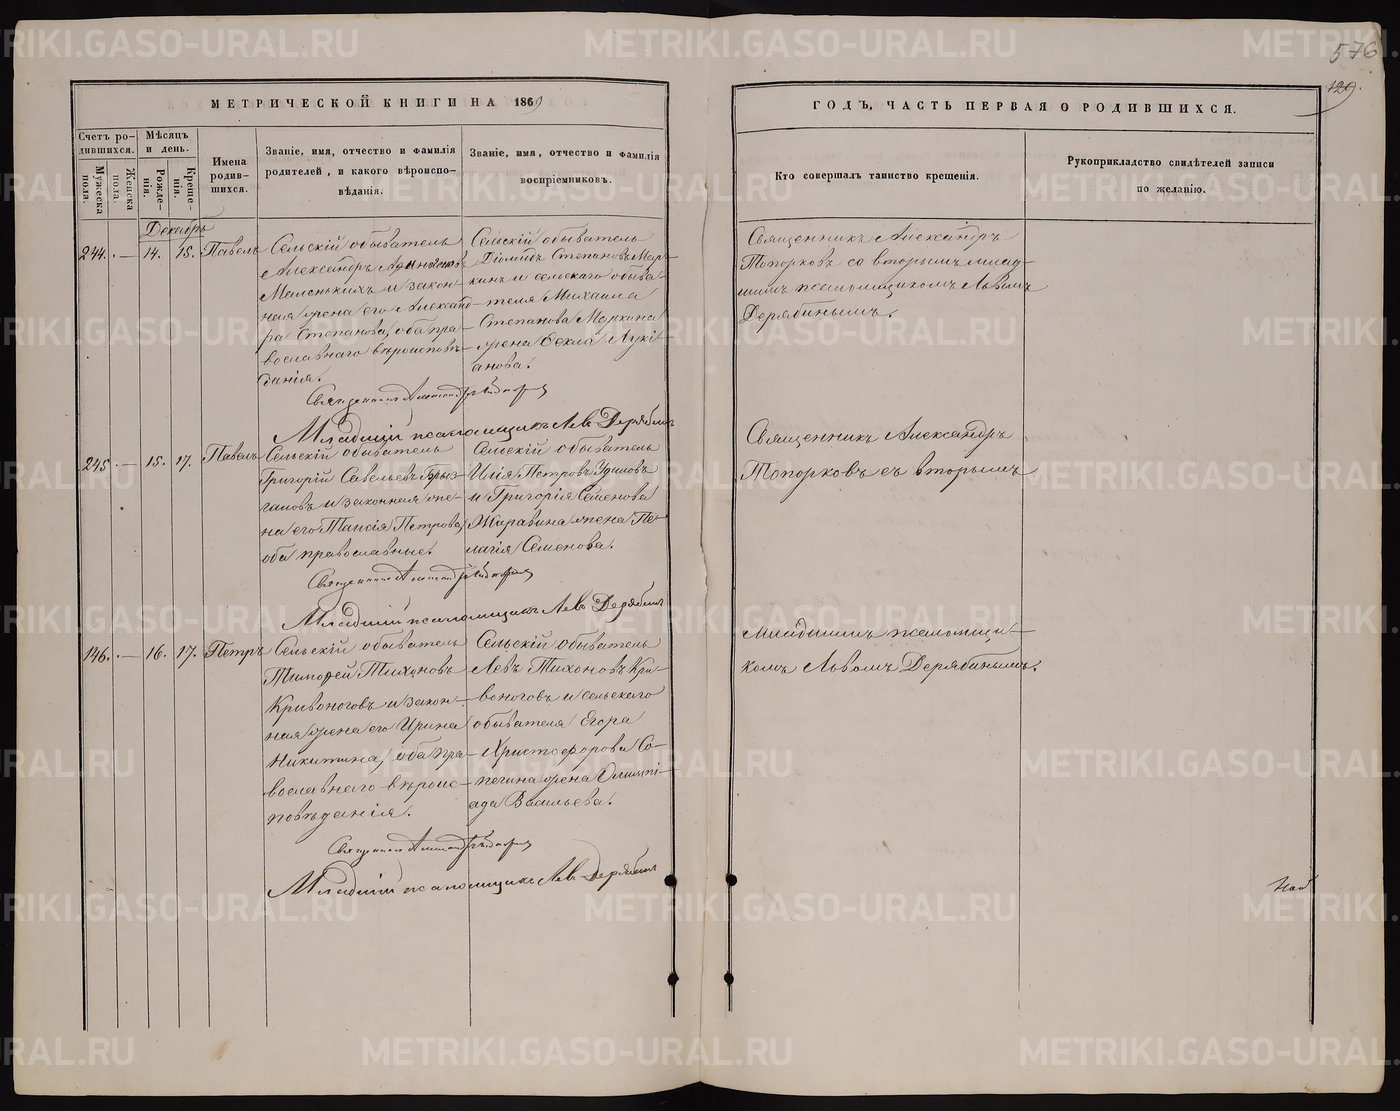 576
129.
МЕТРИЧЕСКОЙ КНИГИ НА 1869
ГОДЪ, ЧАСТЬ ПЕРВАЯ О РОДИВШИХСЯ.
Счетъ ро-
дившихся.
Мужеска
пола.
Женска
пола.
Мѣсяцъ
и день.
Рожде-
нія.
Креще-
нія.
Имена
родив-
шихся.
Званіе, имя, отчество и фамилія
родителей, и какого вѣроиспо-
вѣданія.
Званіе, имя, отчество и фамилія
воспріемниковъ.
Кто совершалъ таинство крещенія.
Рукоприкладство свидѣтелей записи
по желанію.
Декабрь
244. — 14. 15. Павелъ
Сельскій обыватель
Александръ
Маленькихъ и закон-
ная жена его Александ-
ра Степанова, оба пра-
вославнаго вѣроисповѣ-
данія.
Сельскій обыватель
Степановъ Мар-
кинъ и сельскаго обыва-
теля Михаила
Степанова Маркина
жена Ѳекла Лукі-
анова.
Священникъ Александръ
Топорковъ со вторымъ млад-
шимъ псаломщикомъ Львомъ
Дерябинымъ.
Священникъ Александръ Топорковъ
Младшій псаломщикъ Левъ Дерябинъ
245. — 15. 17. Павелъ
Сельскій обыватель
Григорій Савельевъ Бры-
згаловъ и законная же-
на его Таисія Петрова,
оба православные.
Сельскій обыватель
Илія Петровъ Удиловъ
и Григорія Семенова
Журавина жена Пе-
лагія Семенова.
Священникъ Александръ
Топорковъ съ вторымъ
Священникъ Александръ Топорковъ
Младшій псаломщикъ Левъ Дерябинъ
146. — 16. 17. Петръ
Сельскій обыватель
Тимофей Тихоновъ
Кривоноговъ и закон-
ная жена его Ирина
Никитина, оба пра-
вославнаго вѣроис-
повѣданія.
Сельскій обыватель
Левъ Тихоновъ Кри-
воноговъ и сельскаго
обывателя Егора
Христофорова Со-
пегина жена Олимпі-
ада Васильева.
младшимъ псаломщи-
комъ Львомъ Дерябинымъ.
Священникъ Александръ Топорковъ
Младшій псаломщикъ Левъ Дерябинъ
METRIKI.GASO-URAL.RU